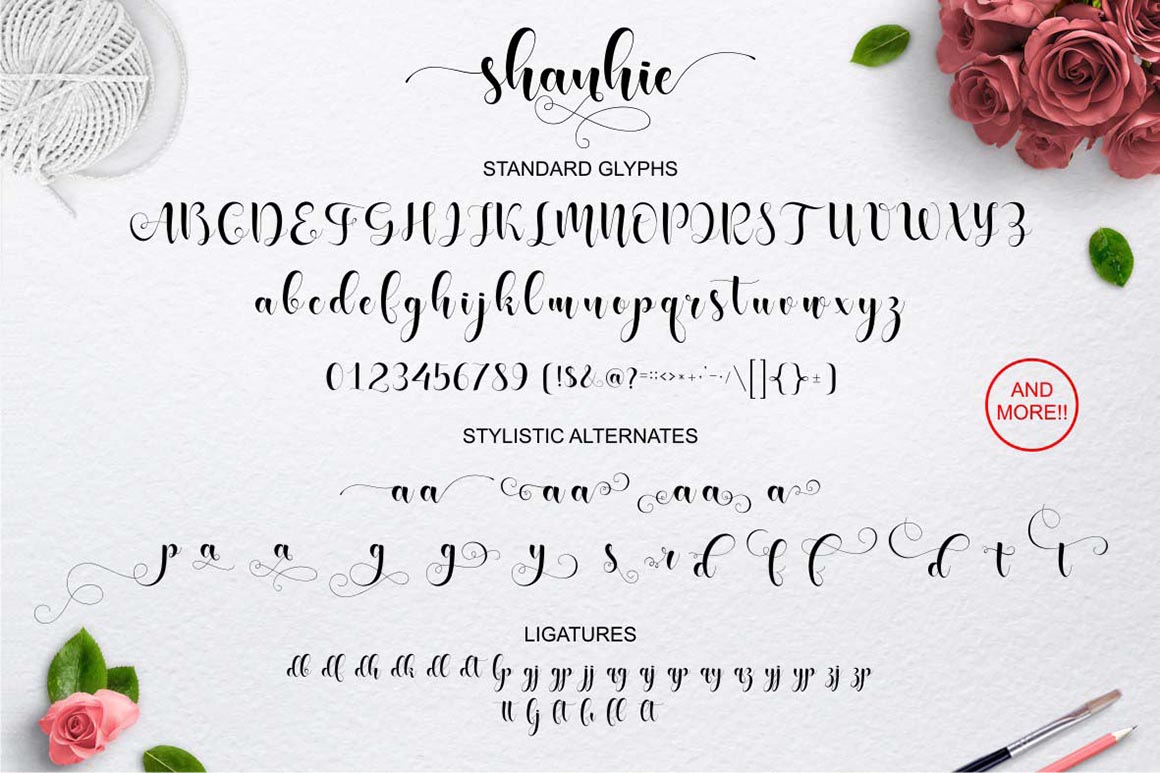 shanhie
STANDARD GLYPHS
ABCDEFGHIJKLMNOPQRSTUVWXYZ
abcdefghijklmnopqrstuvwxyz
0123456789 (!$&@?=:;<>*+·'-·/\[]{}±)
AND
MORE!!
STYLISTIC ALTERNATES
a a a a a a a
p a a g g y s r d f f d t t
LIGATURES
db df dh dk dl dt fp gj gp jj ag aj ap ay az yj yp zj zp
tt fj ft fr ff lt